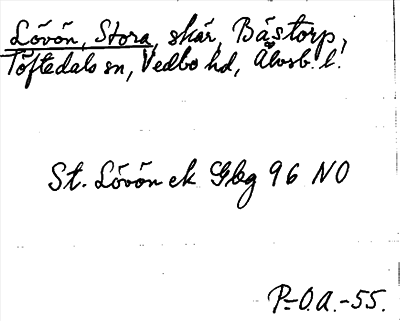 Lövön, Stora, skär, Båstorp,
Töftedals sn, Vedbo hd, Älvsb. l.
St. Lövön ek Gbg 96 NO
P-O.A.-55.